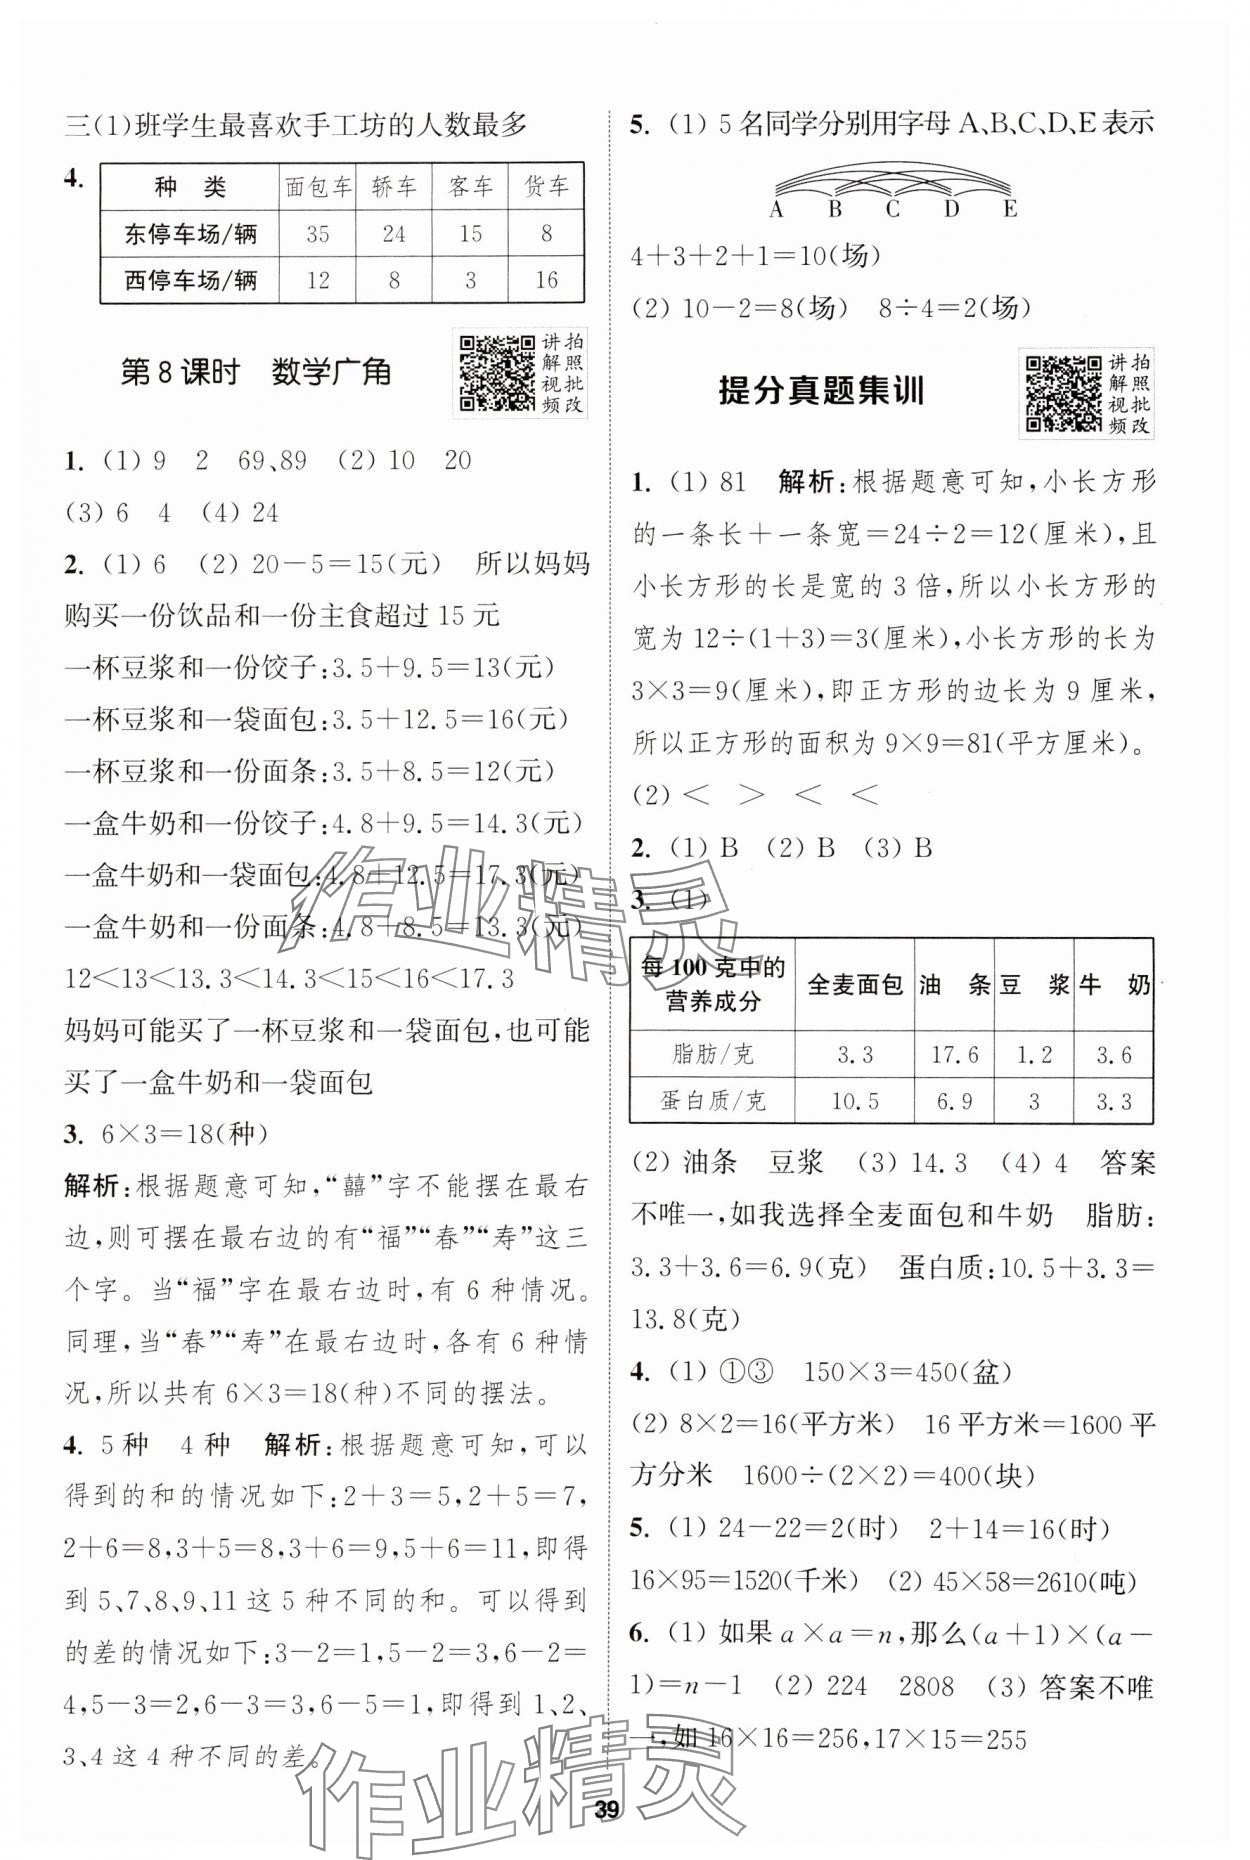 三(1)班学生最喜欢手工坊的人数最多
4.
种 类 面包车 轿车 客车 货车
东停车场/辆 35 24 15 8
西停车场/辆 12 8 3 16
第8课时 数学广角
讲解视频 拍照批改
1. (1) 9 2 69、89 (2) 10 20
(3) 6 4 (4) 24
2. (1) 6 (2) 20-5=15(元) 所以妈妈
购买一份饮品和一份主食超过 15 元
一杯豆浆和一份饺子:3.5+9.5=13(元)
一杯豆浆和一袋面包:3.5+12.5=16(元)
一杯豆浆和一份面条:3.5+8.5=12(元)
一盒牛奶和一份饺子:4.8+9.5=14.3(元)
一盒牛奶和一袋面包:4.8+12.5=17.3(元)
一盒牛奶和一份面条:4.8+8.5=13.3(元)
12<13<13.3<14.3<16<17.3
妈妈可能买了一杯豆浆和一袋面包,也可能
买了一盒牛奶和一袋面包
3. 6×3=18(种)
解析:根据题意可知,“囍”字不能摆在最右
边,则可摆在最右边的有“福”“春”“寿”这三
个字。当“福”字在最右边时,有 6 种情况。
同理,当“春”“寿”在最右边时,各有 6 种情
况,所以共有 6×3=18(种)不同的摆法。
4. 5种 4种 解析:根据题意可知,可以
得到的和的情况如下:2+3=5,2+5=7,
2+6=8,3+5=8,3+6=9,5+6=11,即得
到 5、7、8、9、11 这 5 种不同的和。可以得到
的差的情况如下:3-2=1,5-2=3,6-2=
4,5-3=2,6-3=3,6-5=1,即得到 1、2、
3、4 这 4 种不同的差。
5. (1) 5名同学分别用字母 A、B、C、D、E 表示
A B C D E
4+3+2+1=10(场)
(2) 10-2=8(场) 8÷4=2(场)
提分真题集训
讲解视频 拍照批改
1. (1) 81 解析:根据题意可知,小长方形
的一条长+一条宽=24÷2=12(厘米),且
小长方形的长是宽的 3 倍,所以小长方形的
宽为 12÷(1+3)=3(厘米),小长方形的长为
3×3=9(厘米),即正方形的边长为 9 厘米,
所以正方形的面积为 9×9=81(平方厘米)。
(2) < > < <
2. (1) B (2) B (3) B
3. (1)
每 100 克中的营养成分 全麦面包 油 条 豆 浆 牛 奶
脂肪/克 3.3 17.6 1.2 3.6
蛋白质/克 10.5 6.9 3 3.3
(2) 油条 豆浆 (3) 14.3 (4) 4 答案
不唯一,如我选择全麦面包和牛奶 脂肪:
3.3+3.6=6.9(克) 蛋白质:10.5+3.3=
13.8(克)
4. (1) ①③ 150×3=450(盆)
(2) 8×2=16(平方米) 16 平方米=1600 平
方分米 1600÷(2×2)=400(块)
5. (1) 24-22=2(时) 2+14=16(时)
16×95=1520(千米) (2) 45×58=2610(吨)
6. (1) 如果 a×a=n,那么(a+1)×(a-
1)=n-1 (2) 224 2808 (3) 答案不唯
一,如 16×16=256,17×15=255
作业精灵
作业精灵
39